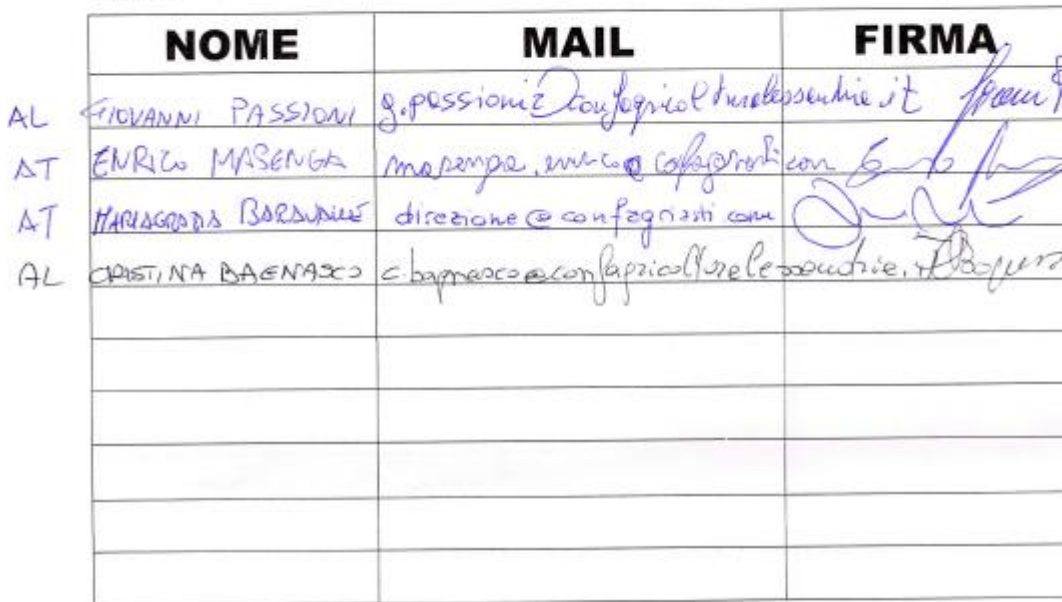 NOME MAIL FIRMA
AL GIOVANNI PASSIONI g.passioni@confagricolturalessandria.it
AT ENRICO MASENGA masenga.enrico@confagriasti.com
AT MARIAGRAZIA BARAVALLE direzione@confagriasti.com
AL CRISTINA BAGNASCO c.bagnasco@confagricolturalessandria.it